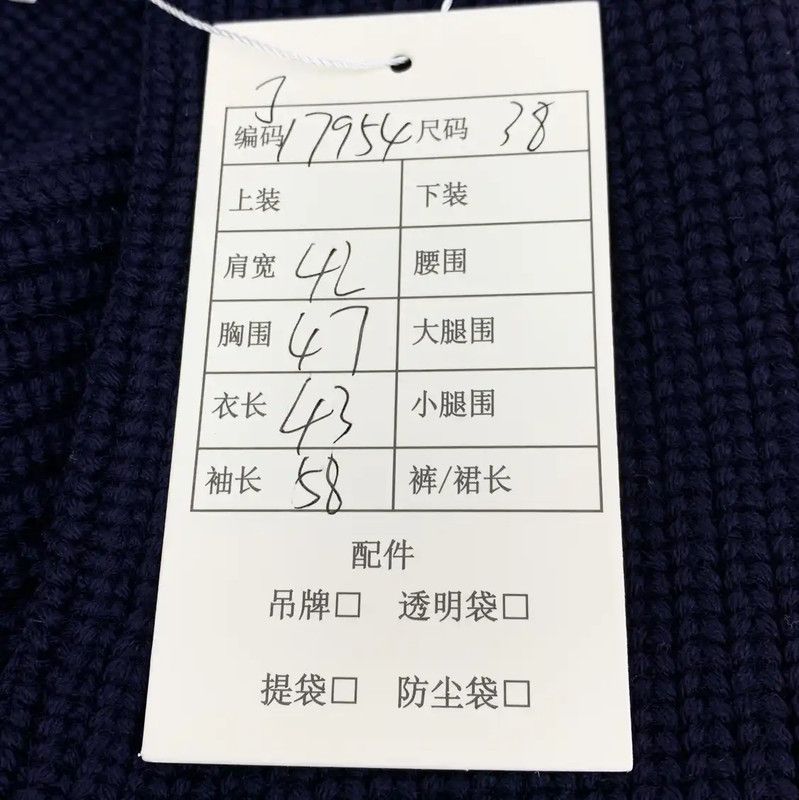 编码 17954 尺码 38
上装 下装
肩宽 42 腰围
胸围 47 大腿围
衣长 43 小腿围
袖长 58 裤/裙长
配件
吊牌□ 透明袋□
提袋□ 防尘袋□